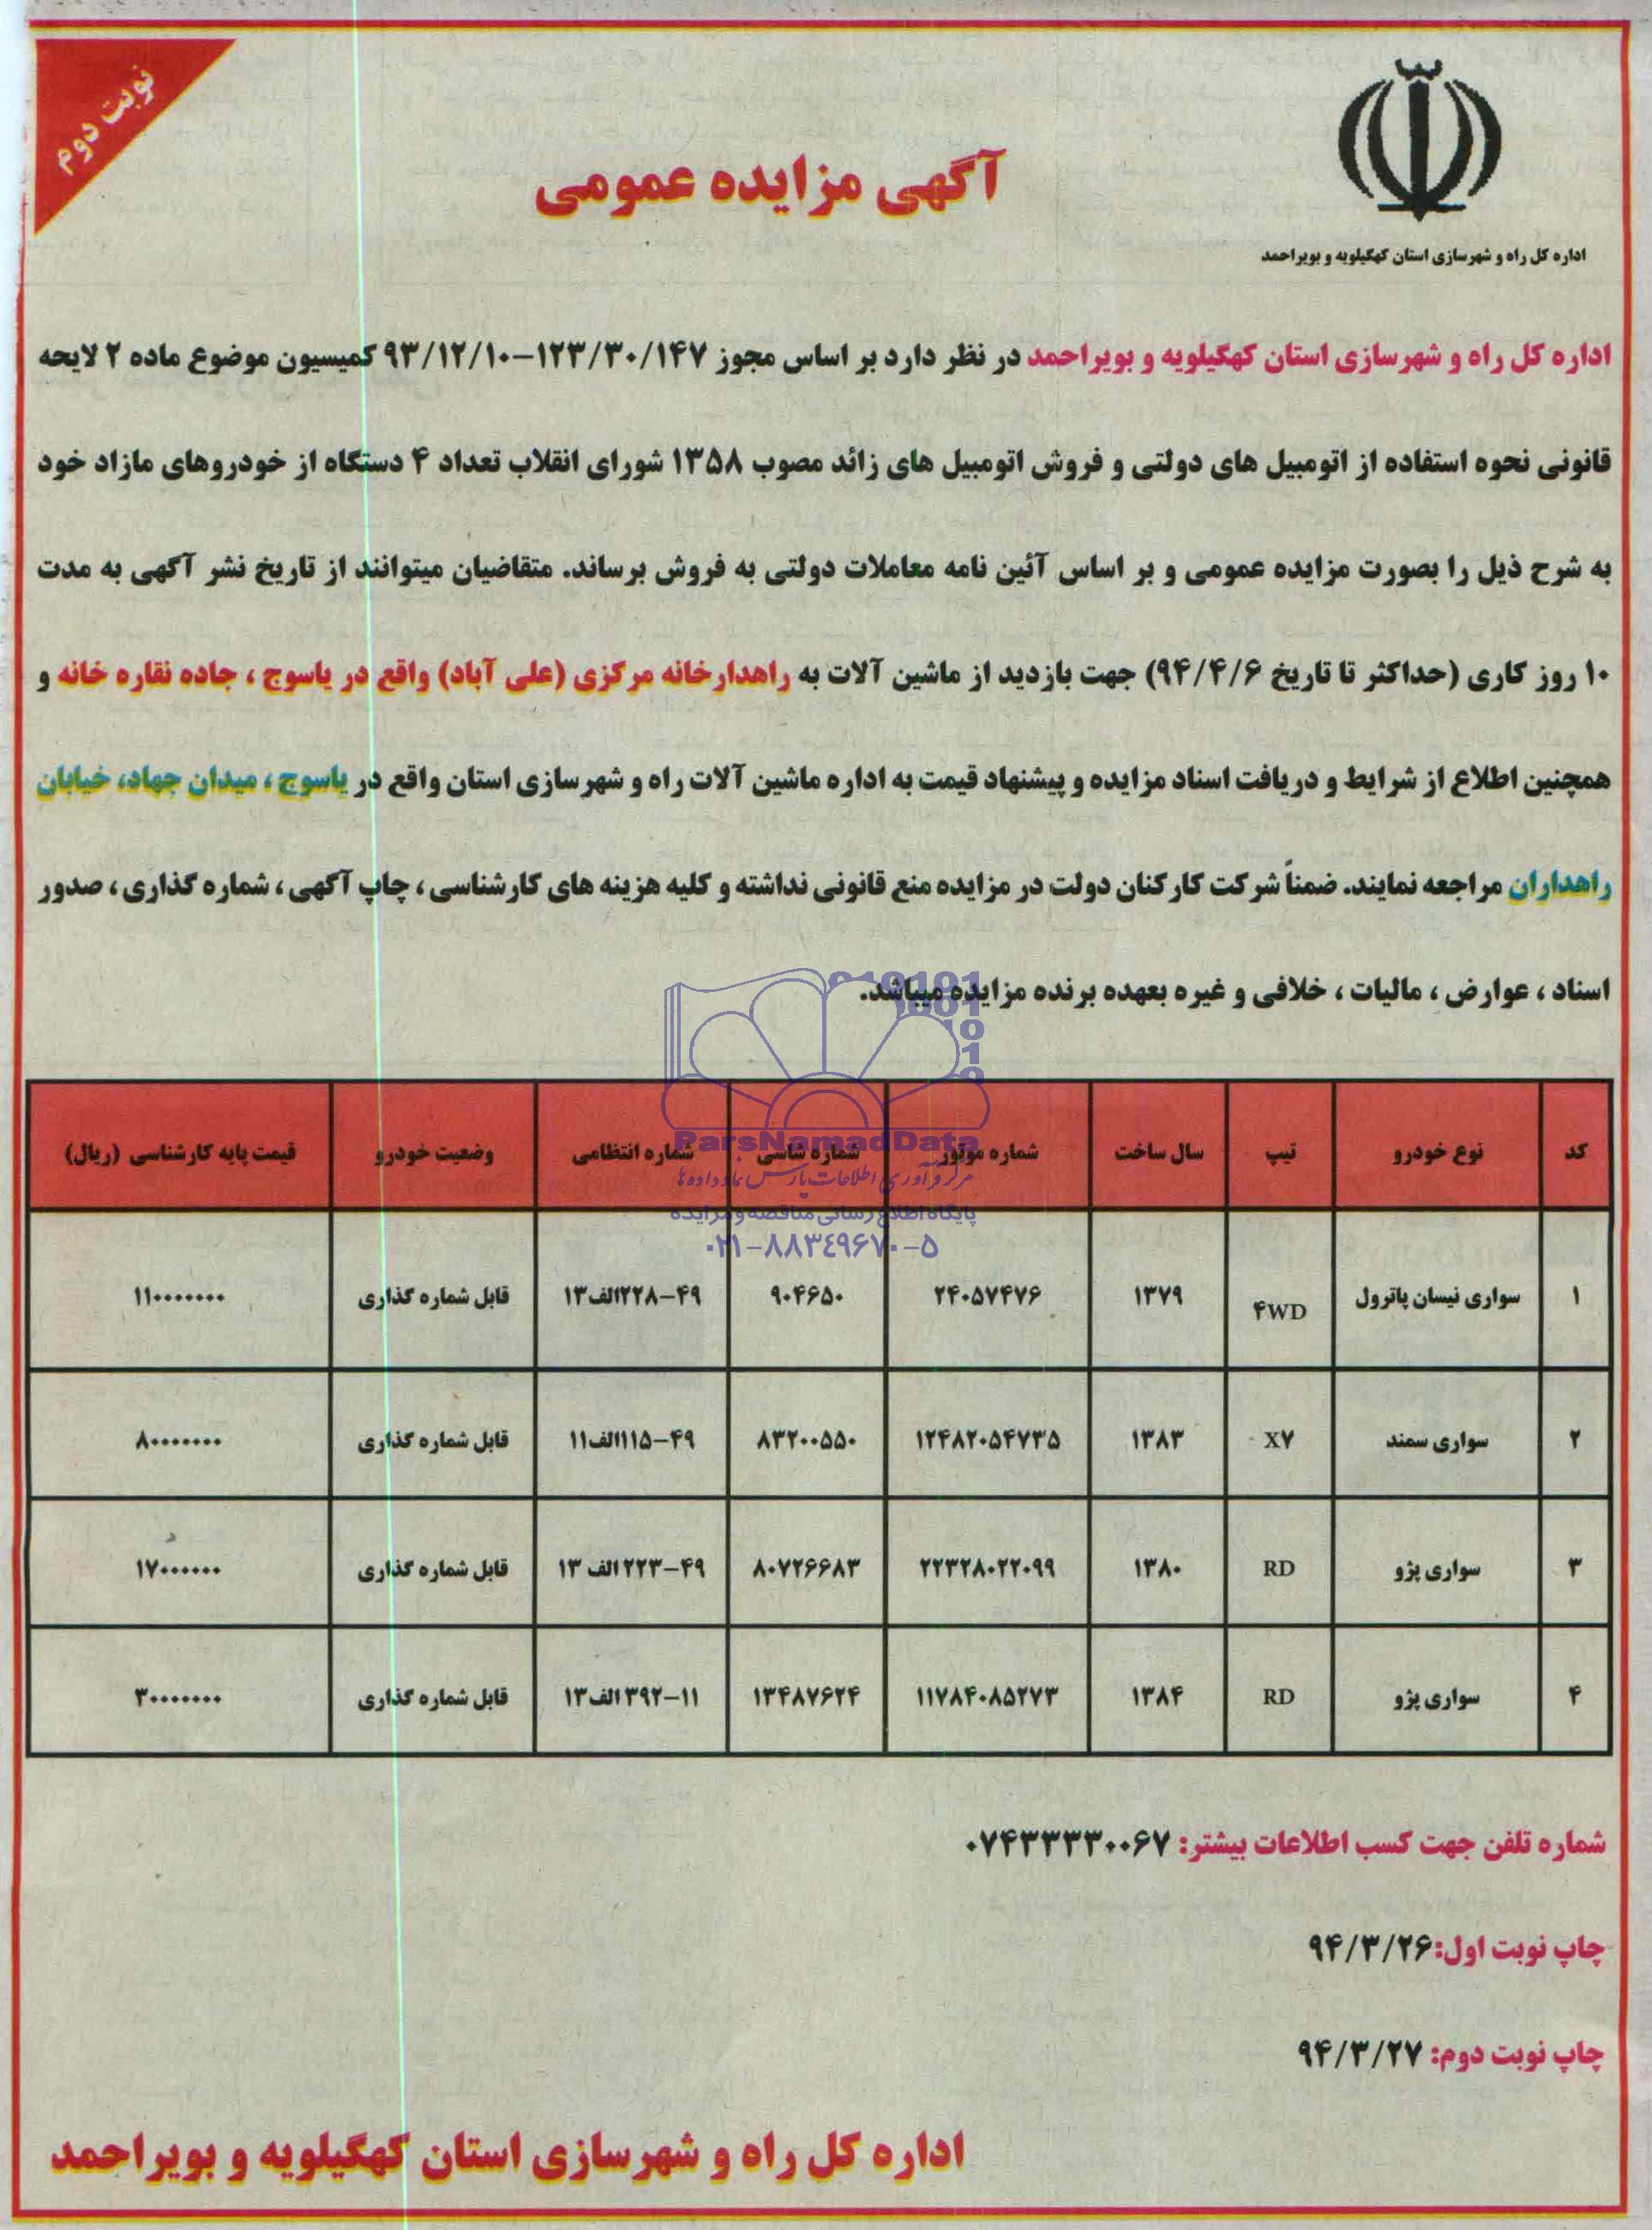 نوبت دوم
آگهی مزایده عمومی
اداره کل راه و شهرسازی استان کهگیلویه و بویراحمد
اداره کل راه و شهرسازی استان کهگیلویه و بویراحمد در نظر دارد بر اساس مجوز ۱۲۳/۳۰/۱۴۷–۹۳/۱۲/۱۰ کمیسیون موضوع ماده ۲ لایحه
قانونی نحوه استفاده از اتومبیل های دولتی و فروش اتومبیل های زائد مصوب ۱۳۵۸ شورای انقلاب تعداد ۴ دستگاه از خودروهای مازاد خود
به شرح ذیل را بصورت مزایده عمومی و بر اساس آئین نامه معاملات دولتی به فروش برساند. متقاضیان میتوانند از تاریخ نشر آگهی به مدت
۱۰ روز کاری (حداکثر تا تاریخ ۹۴/۴/۶) جهت بازدید از ماشین آلات به راهدارخانه مرکزی (علی آباد) واقع در یاسوج ، جاده نقاره خانه و
همچنین اطلاع از شرایط و دریافت اسناد مزایده و پیشنهاد قیمت به اداره ماشین آلات راه و شهرسازی استان واقع در یاسوج ، میدان جهاد، خیابان
راهداران مراجعه نمایند. ضمناً شرکت کارکنان دولت در مزایده منع قانونی نداشته و کلیه هزینه های کارشناسی ، چاپ آگهی ، شماره گذاری ، صدور
اسناد ، عوارض ، مالیات ، خلافی و غیره بعهده برنده مزایده میباشد.
کد نوع خودرو تیپ سال ساخت شماره موتور شماره شاسی شماره انتظامی وضعیت خودرو قیمت پایه کارشناسی (ریال)
۱ سواری نیسان پاترول ۴WD ۱۳۷۹ ۲۴۰۵۷۴۷۶ ۹۰۴۶۵۰ ۴۹–۲۲۸الف۱۳ قابل شماره گذاری ۱۱۰۰۰۰۰۰۰
۲ سواری سمند X۷ ۱۳۸۳ ۱۲۴۸۲۰۵۴۷۳۵ ۸۳۲۰۰۵۵۰ ۴۹–۱۱۵الف۱۱ قابل شماره گذاری ۸۰۰۰۰۰۰۰
۳ سواری پژو RD ۱۳۸۰ ۲۲۳۲۸۰۲۲۰۹۹ ۸۰۷۲۶۶۸۳ ۴۹–۲۲۳ الف ۱۳ قابل شماره گذاری ۱۷۰۰۰۰۰۰
۴ سواری پژو RD ۱۳۸۴ ۱۱۷۸۴۰۸۵۲۷۳ ۱۳۴۸۷۶۲۴ ۱۱–۳۹۲ الف۱۳ قابل شماره گذاری ۳۰۰۰۰۰۰۰
ParsNamadData
مرکز فرآوری اطلاعات پارس نماد داده ها
پایگاه اطلاع رسانی مناقصه و مزایده
۰۲۱-۸۸۳٤۹۶۷۰-۵
شماره تلفن جهت کسب اطلاعات بیشتر: ۰۷۴۳۳۳۳۰۰۶۷
چاپ نوبت اول:۹۴/۳/۲۶
چاپ نوبت دوم: ۹۴/۳/۲۷
اداره کل راه و شهرسازی استان کهگیلویه و بویراحمد